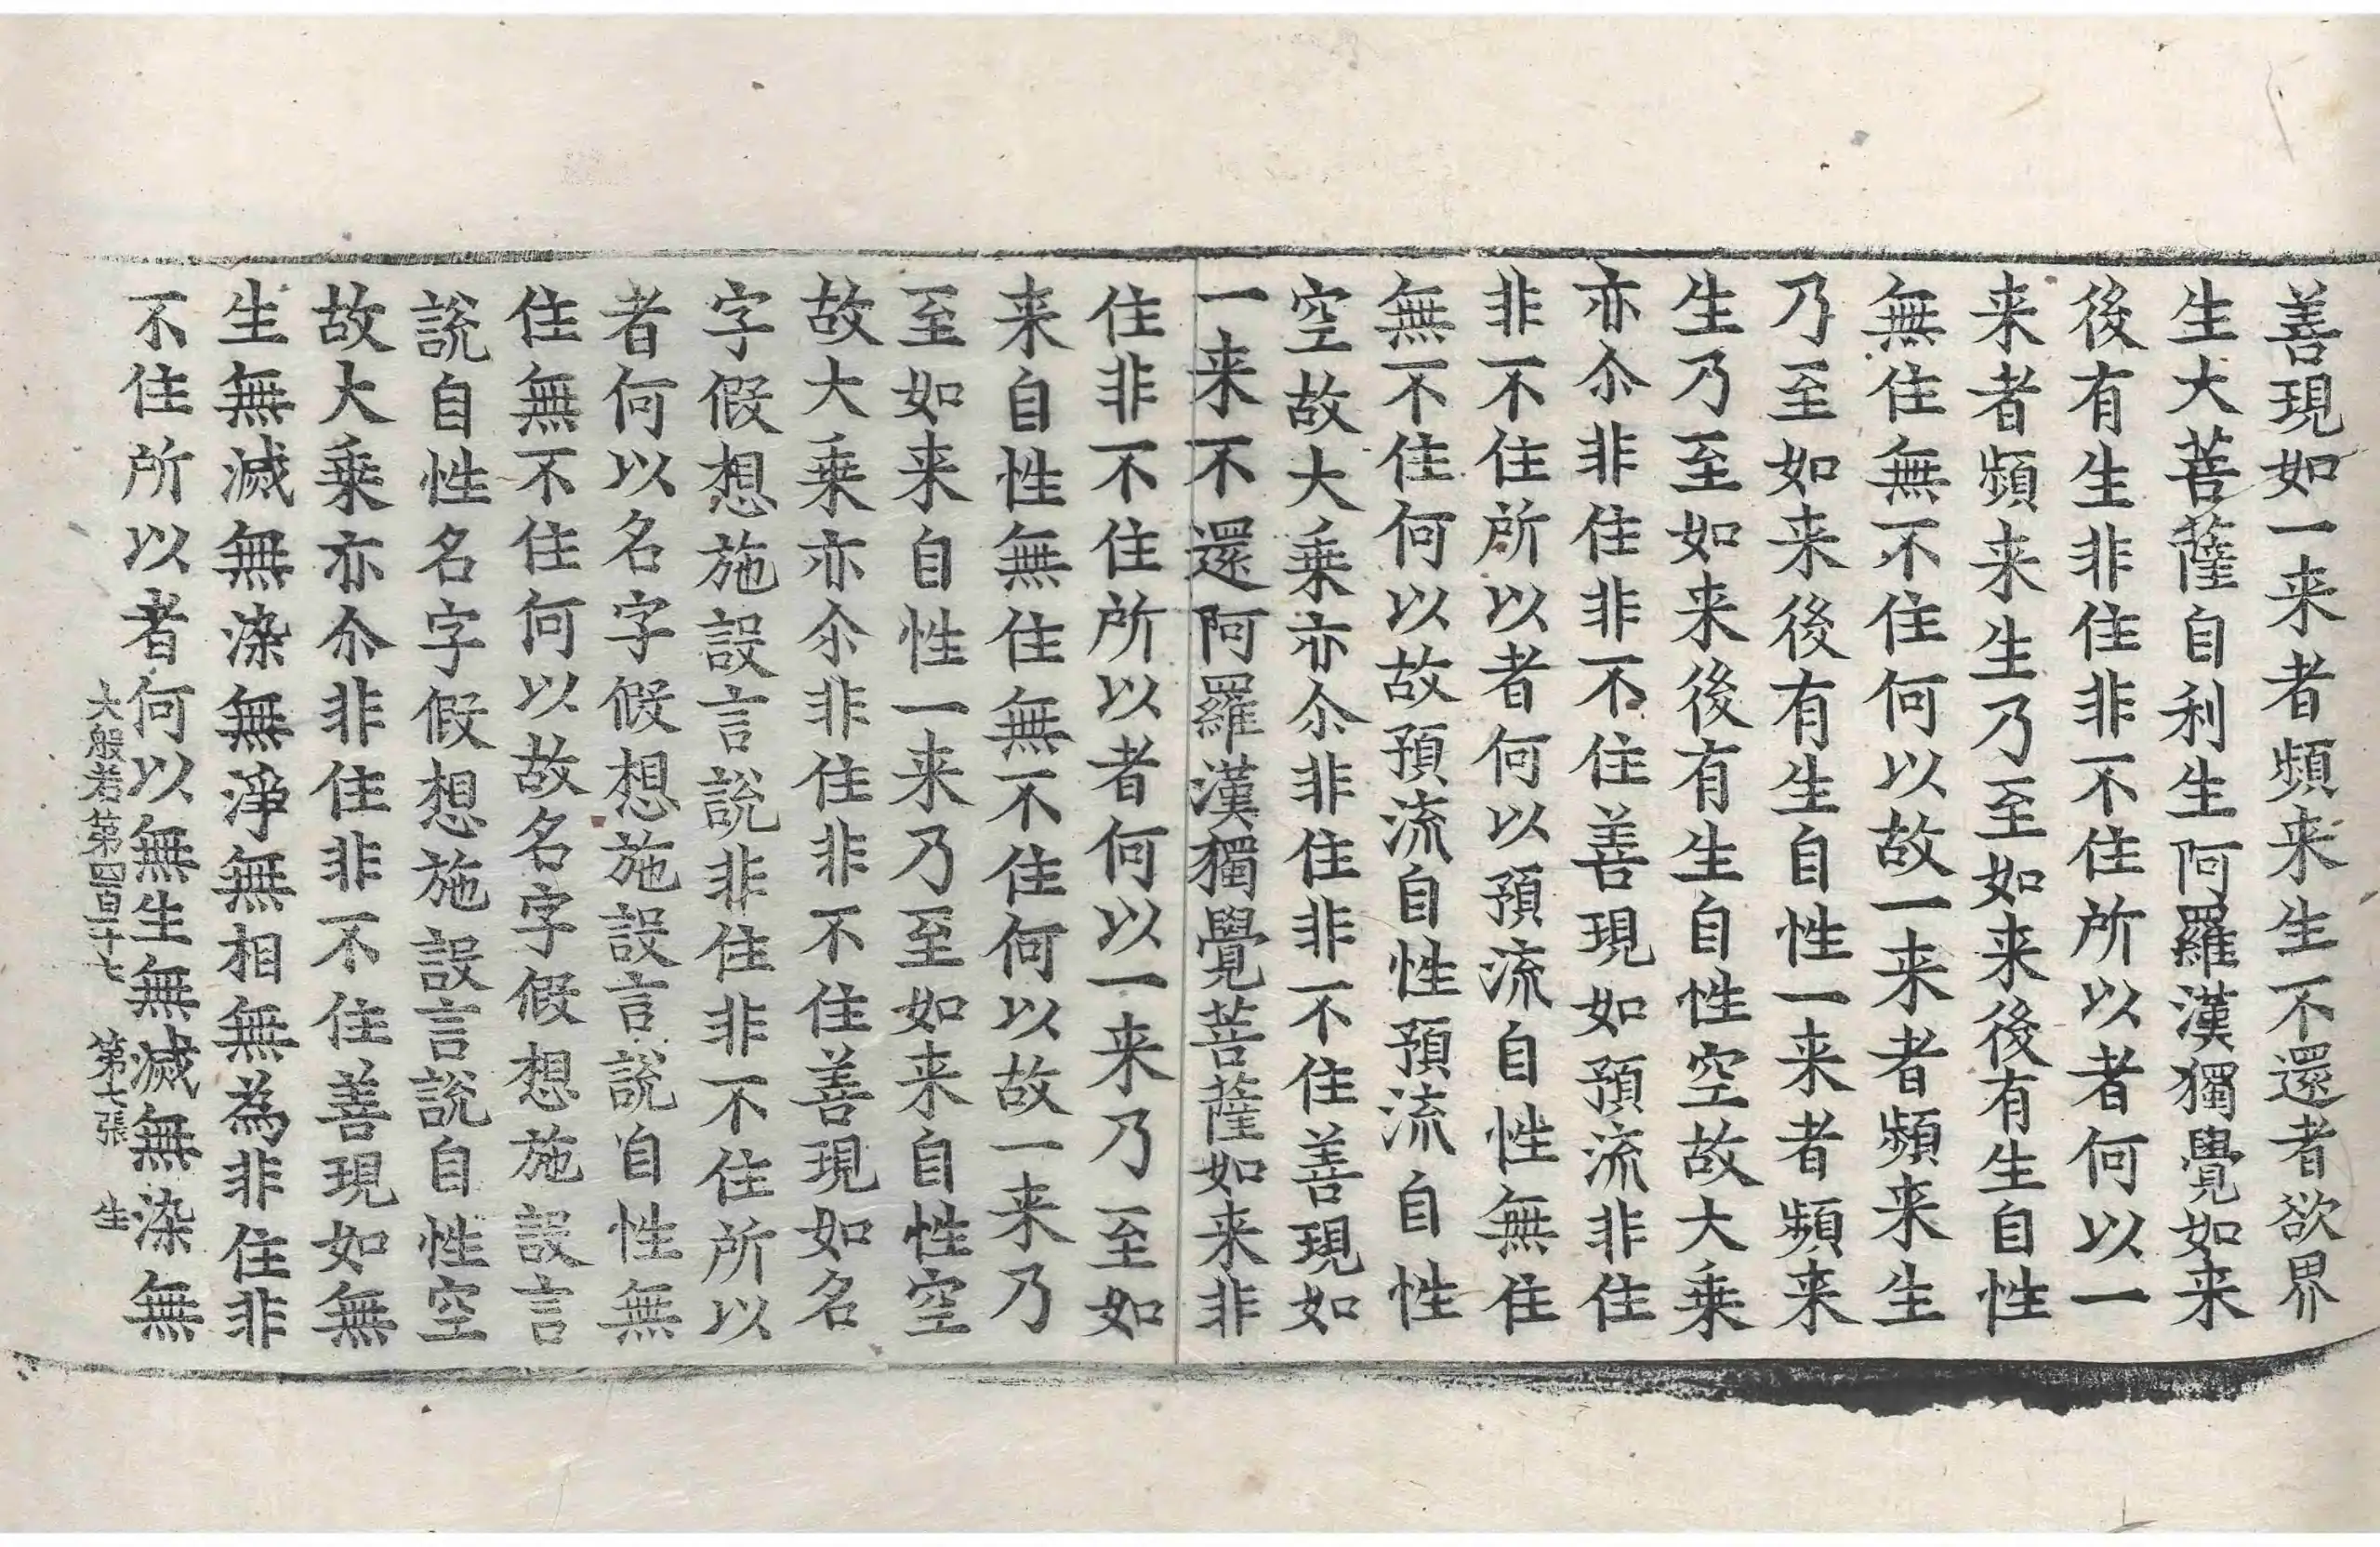 善現如一来者頻来生不還者欲界
生大菩薩自利生阿羅漢獨覺如来
後有生非住非不住所以者何以一
来者頻来生乃至如来後有生自性
無住無不住何以故一来者頻来生
乃至如来後有生自性一来者頻来
生乃至如来後有生自性空故大乗
亦尒非住非不住善現如預流非住
非不住所以者何以預流自性無住
無不住何以故預流自性預流自性
空故大乗亦尒非住非不住善現如
一来不還阿羅漢獨覺菩薩如来非
住非不住所以者何以一来乃至如
来自性無住無不住何以故一来乃
至如来自性一来乃至如来自性空
故大乗亦尒非住非不住善現如名
字假想施設言說非住非不住所以
者何以名字假想施設言說自性無
住無不住何以故名字假想施設言
說自性名字假想施設言說自性空
故大乗亦尒非住非不住善現如無
生無滅無染無淨無相無為非住非
不住所以者何以無生無滅無染無
大般若第四百十七 第七張 生